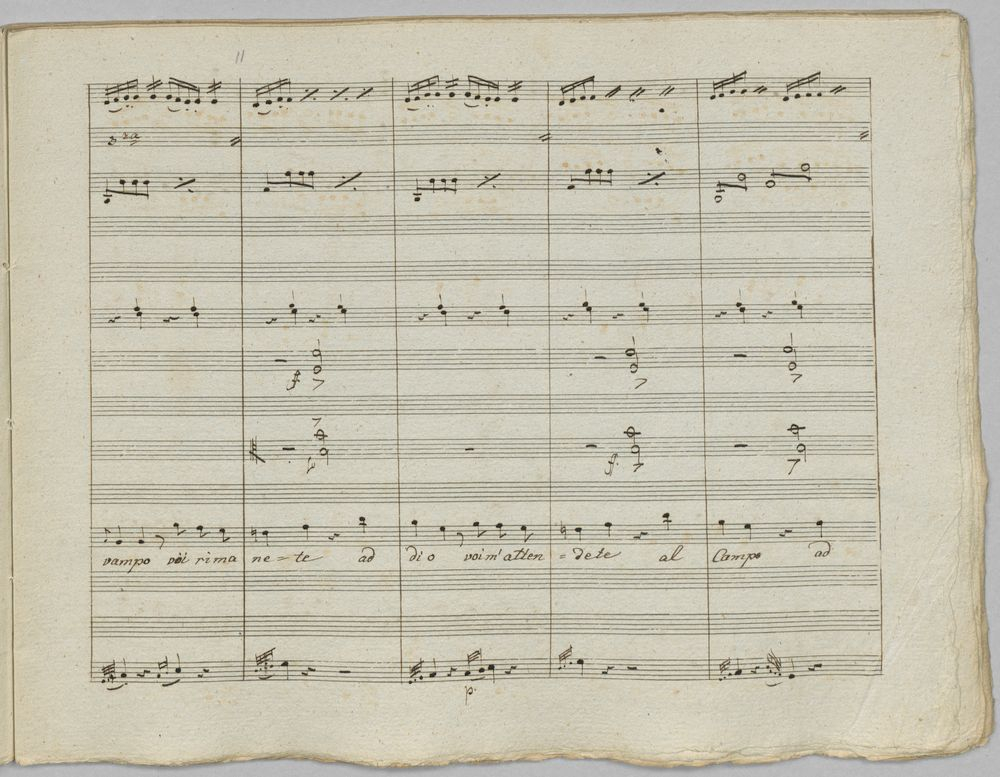 11
3 za
f.
p
f.
vampo voi rima ne=te ad dio voi m'atten =dete al Campo ad
p.